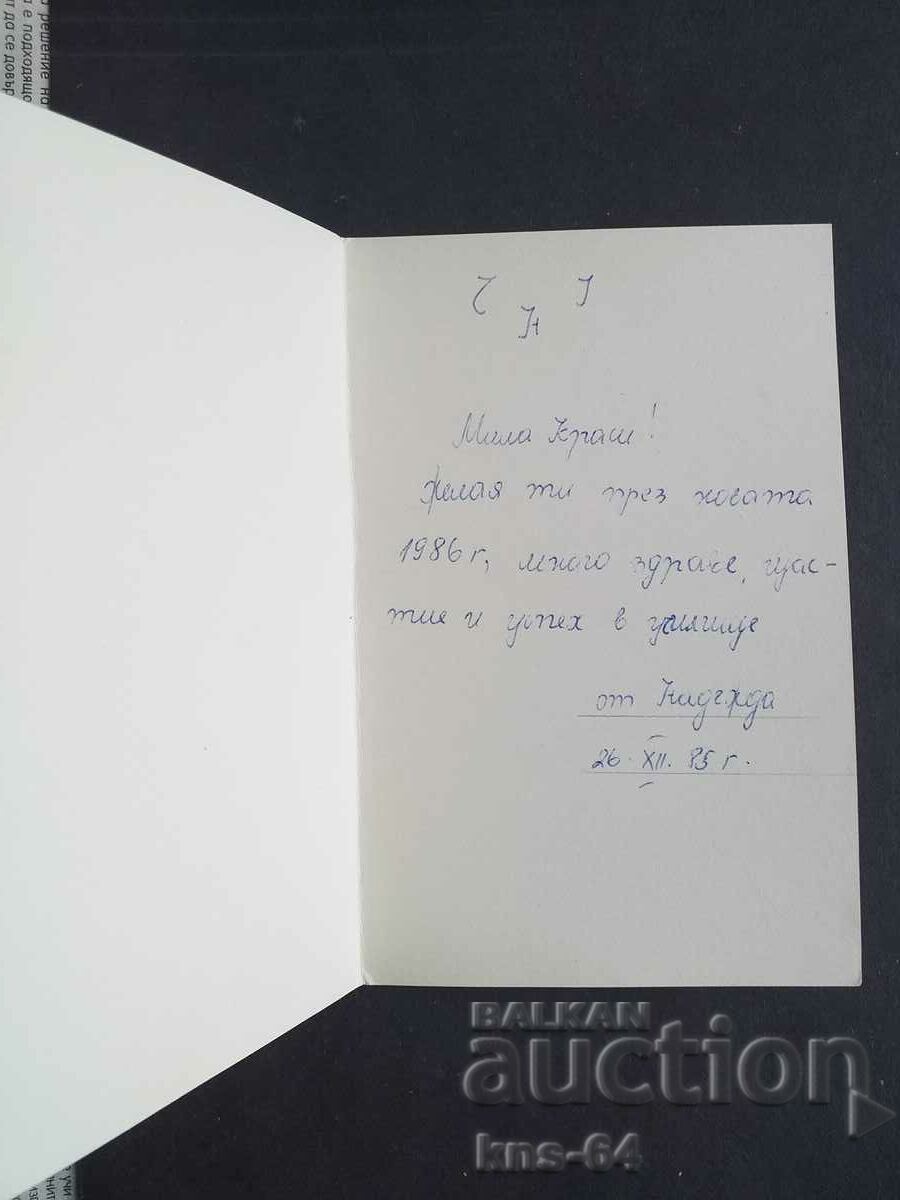 решение на
а е подходящо
ят да се довър
Ч Н Г
Мила Краси!
Желая ти през новата
1986 г, много здраве, щас-
тие и успех в училище
от Надежда
26. XII. 85 г.
BALKAN
auction
kns-64